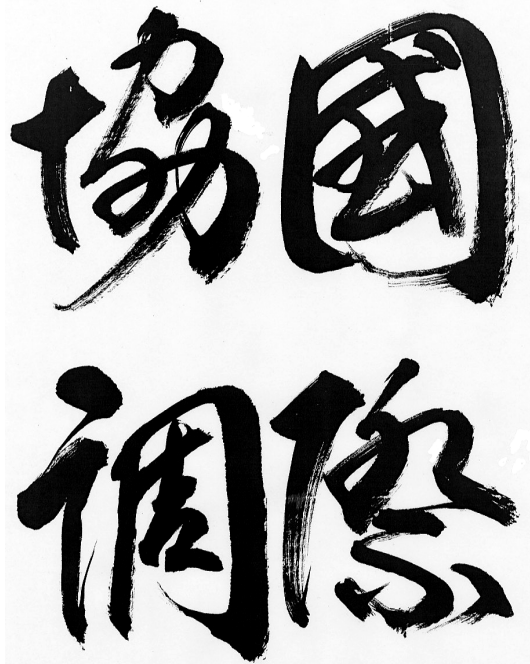 國際
協調